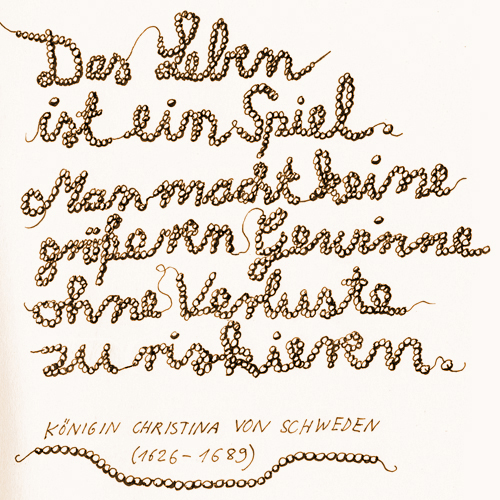 Das Leben
ist ein Spiel
Man macht keine
größeren Gewinne
ohne Verluste
zu riskieren
KÖNIGIN CHRISTINA VON SCHWEDEN
(1626-1689)